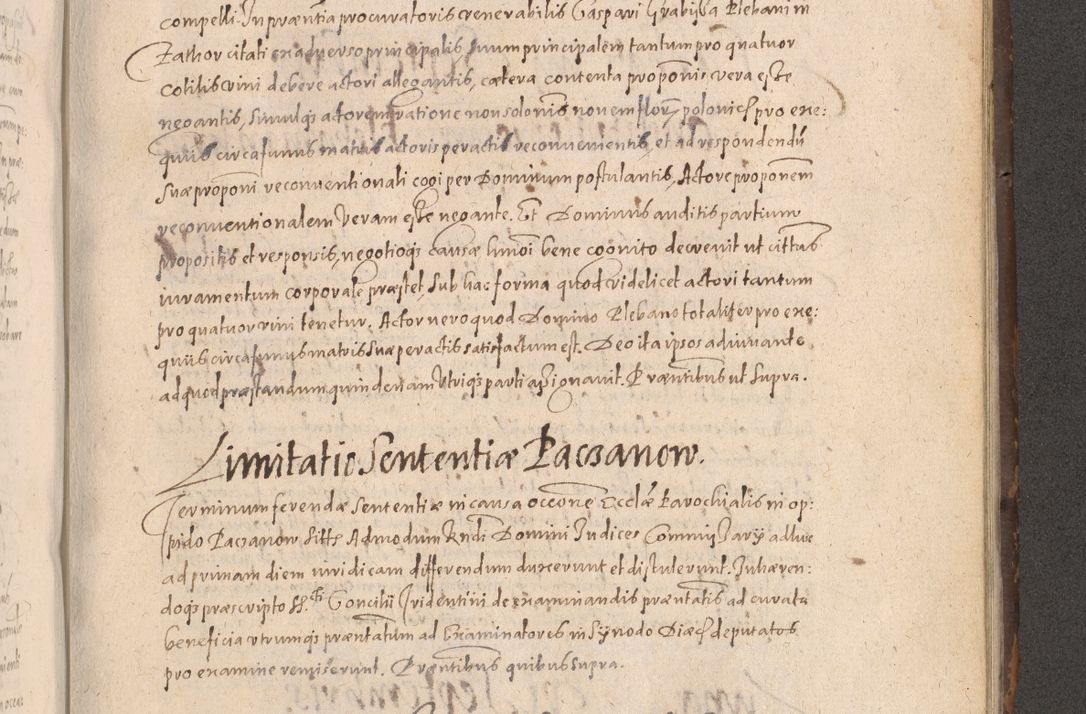 compelli. In præntia procuratoris venerabilis Gaspari Grabissa Plebani in
Zathor citati ex adverso principalis, suum principalem tantum pro quatuor
cotilis vini debere actori allegantis, cætera contenta proponis vera esse
negantis, simulq; actorem ratione non solonis novem flor: polonic: pro exe:
quiis circa funus matris actoris peractis reconvenientis, et ad respondendū
suæ proponi reconventionali cogi per Dominum postulantis, Actore proponem
reconventionalem veram esse negante. Et Dominus auditis partium
propositis et responsis, negotioq; causæ huiōi bene cognito decrevit ut citatus
iuramentum corporale præstet, sub hac forma quod videlicet actori tantum
pro quatuor vini tenetur. Actor vero quod Domino Plebano totaliter pro exe:
quiis circa funus matris suæ peractis satisfactum est. Deo ita ipsos adiuvante
ad quod præstandum quindenam utriq; parti assignavit. Præntibus ut supra.
Limitatio Sententiæ Paczanow.
Terminum ferendæ Sententiæ in causa occone Ecclæ Parochialis in op:
pido Paczanow Sitæ Admodum Rndi Domini Iudices Commissarij adhuc
ad primam diem iuridicam differendum duxerunt et distulerunt. Inhæren:
doq; præscripto SS. Concilii Tridentini de examinandis præntatis ad curata
beneficia utrumq; præntatum ad Examinatores in Synodo Diæc: deputatos
pro examine remiserunt. Præntibus quibus supra.